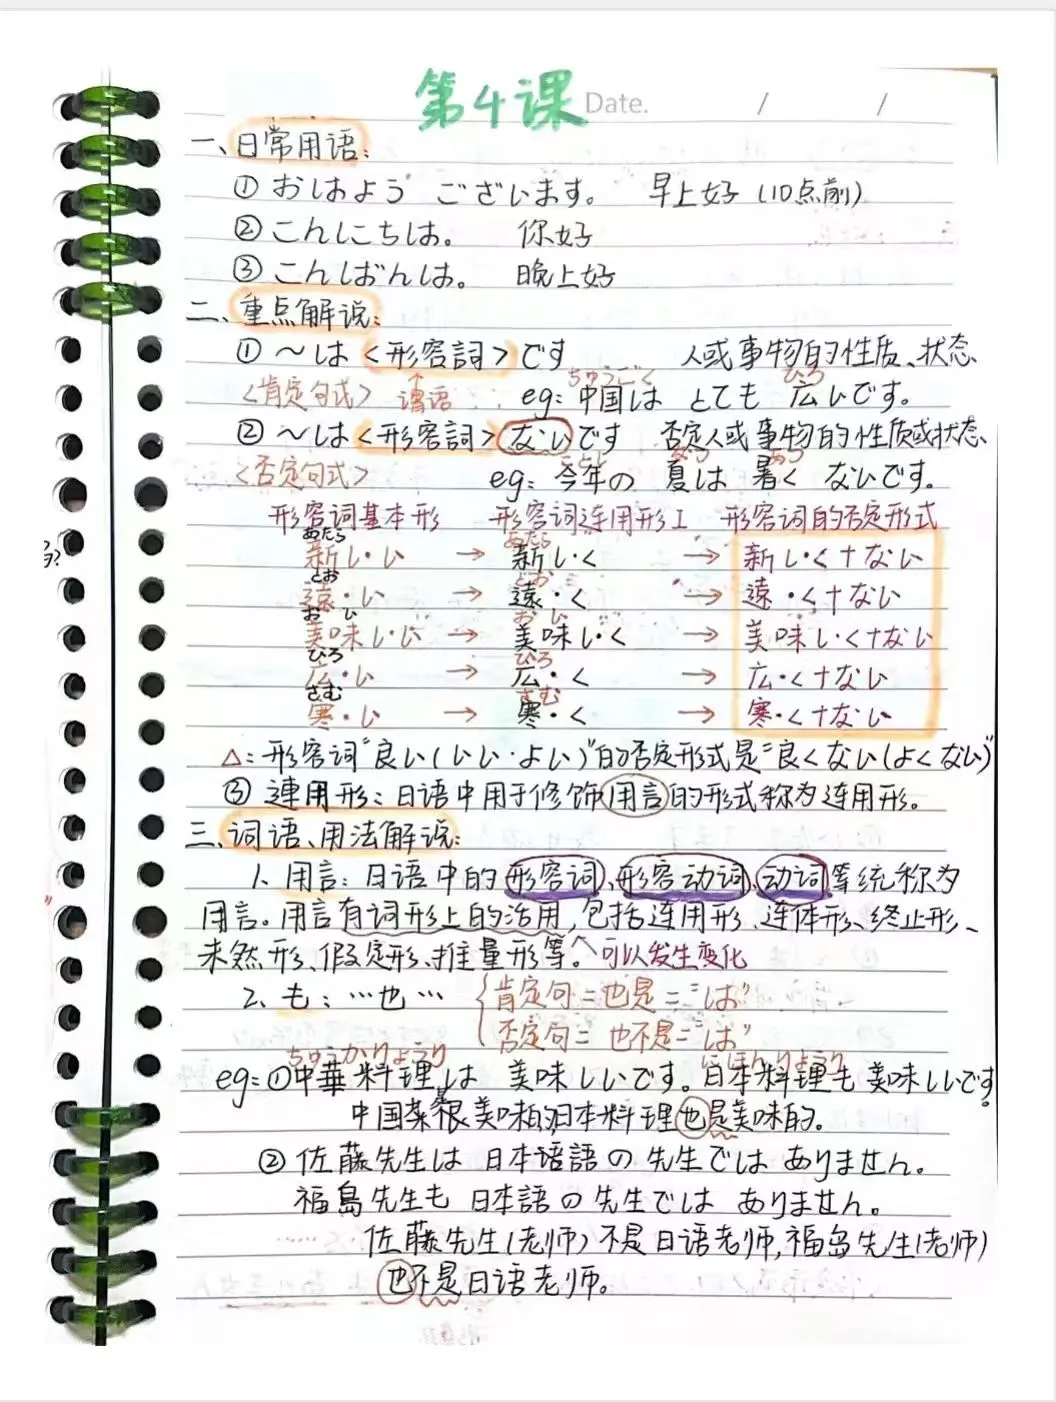 第4课 Date. / /
一、日常用语:
① おはよう ございます。 早上好(10点前)
② こんにちは。 你好
③ こんばんは。 晚上好
二、重点解说:
① ～は<形容詞>です 人或事物的性质、状态
ちゅうごく ひろ
<肯定句式> 谓语 eg: 中国は とても 広いです。
② ～は<形容詞>ないです 否定人或事物的性质或状态
ことし なつ あつ
<否定句式> eg: 今年の 夏は 暑く ないです。
形容词基本形 形容词连用形I 形容词的否定形式
あたら あたら
新し・い → 新し・く → 新し・く+ない
とお とお
遠・い → 遠・く → 遠・く+ない
おい おい
美味し・い → 美味し・く → 美味し・く+ない
ひろ ひろ
広・い → 広・く → 広・く+ない
さむ さむ
寒・い → 寒・く → 寒・く+ない
△: 形容词"良い(いい・よい)"的否定形式是"良くない(よくない)"
③ 連用形: 日语中用于修饰用言的形式称为连用形。
三、词语、用法解说:
1、用言: 日语中的形容词、形容动词、动词等统称为
用言。用言有词形上的活用,包括连用形、连体形、终止形、
未然形、假定形、推量形等。可以发生变化
2、も: …也… 肯定句=也是="は"
否定句= 也不是="は"
ちゅうかりょうり にほんりょうり
eg: ①中華料理は 美味しいです。日本料理も 美味しいです。
中国菜很美味的,日本料理也是美味的。
② 佐藤先生は 日本语語の 先生では ありません。
福島先生も 日本語の 先生では ありません。
佐藤先生(老师)不是日语老师,福岛先生(老师)
也不是日语老师。